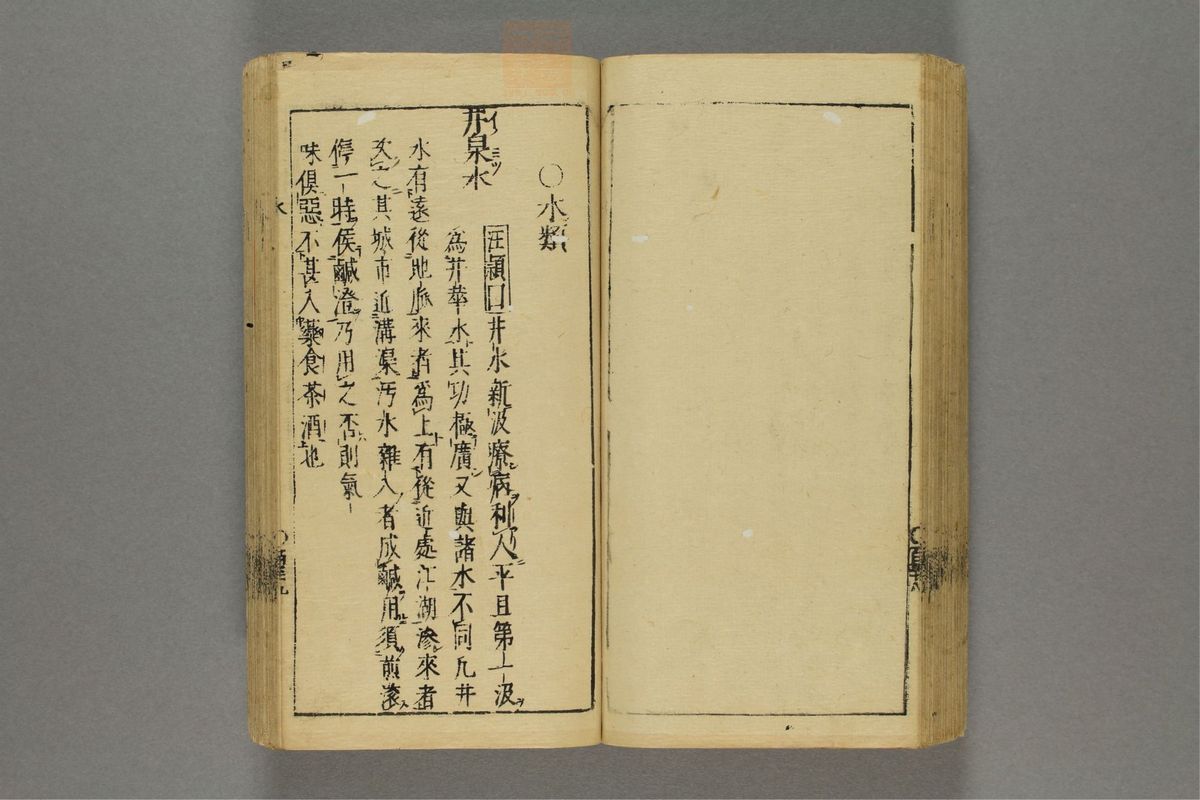 ○水類
井泉水
汪頴曰井水新汲療病利人平旦第一汲
為井華水其功極廣又與諸水不同凡井
水有遠從地脉來者為上有從近處江湖滲來者
次之其城市近溝渠汚水雜入者成鹹用須煎滾
停一時侯鹹澄乃用之否則氣
味俱惡不甚入藥食茶酒也
水